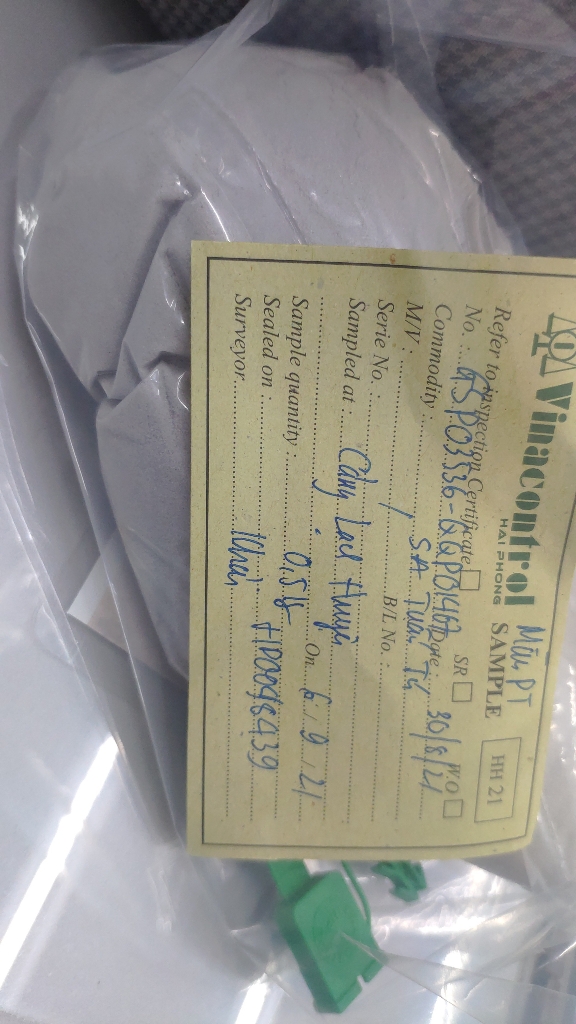 Vinacontrol
HAI PHONG
Mẫu PT
SAMPLE
HH 21
Refer to inspection Certificate SR W.O
No. : Date : 30/8/21
Commodity :
M/V : /
Serie No. : B/L No. :
Sampled at : Cảng Lạch Huyện
On 6/9/21
Sample quantity : 0,5
Sealed on :
Surveyor Khải